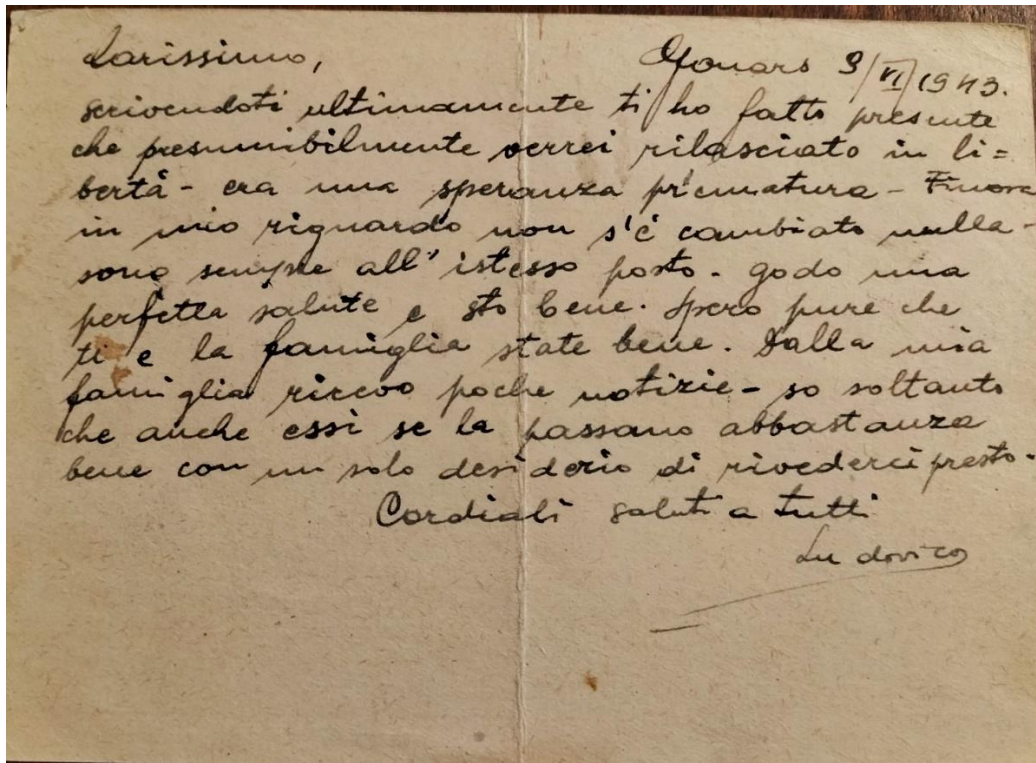 Carissimo, Gonars 9/VI/1943.
scrivendoti ultimamente ti ho fatto presente
che presumibilmente verrei rilasciato in li=
bertà - era una speranza prematura - Finora
in mio riguardo non s'è cambiato nulla -
sono sempre all'istesso posto. godo una
perfetta salute e sto bene. Spero pure che
tu e la famiglia state bene. Dalla mia
famiglia ricevo poche notizie - so soltanto
che anche essi se la passano abbastanza
bene con un solo desiderio di rivederci presto -
Cordiali saluti a tutti
Ludovico